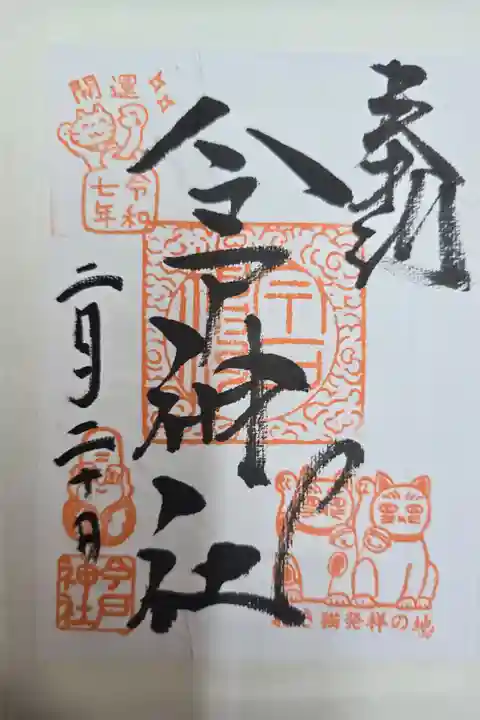 奉拝
開運
令和
七年
今戸神社
二月二十日
今戸
神社
猫発祥の地